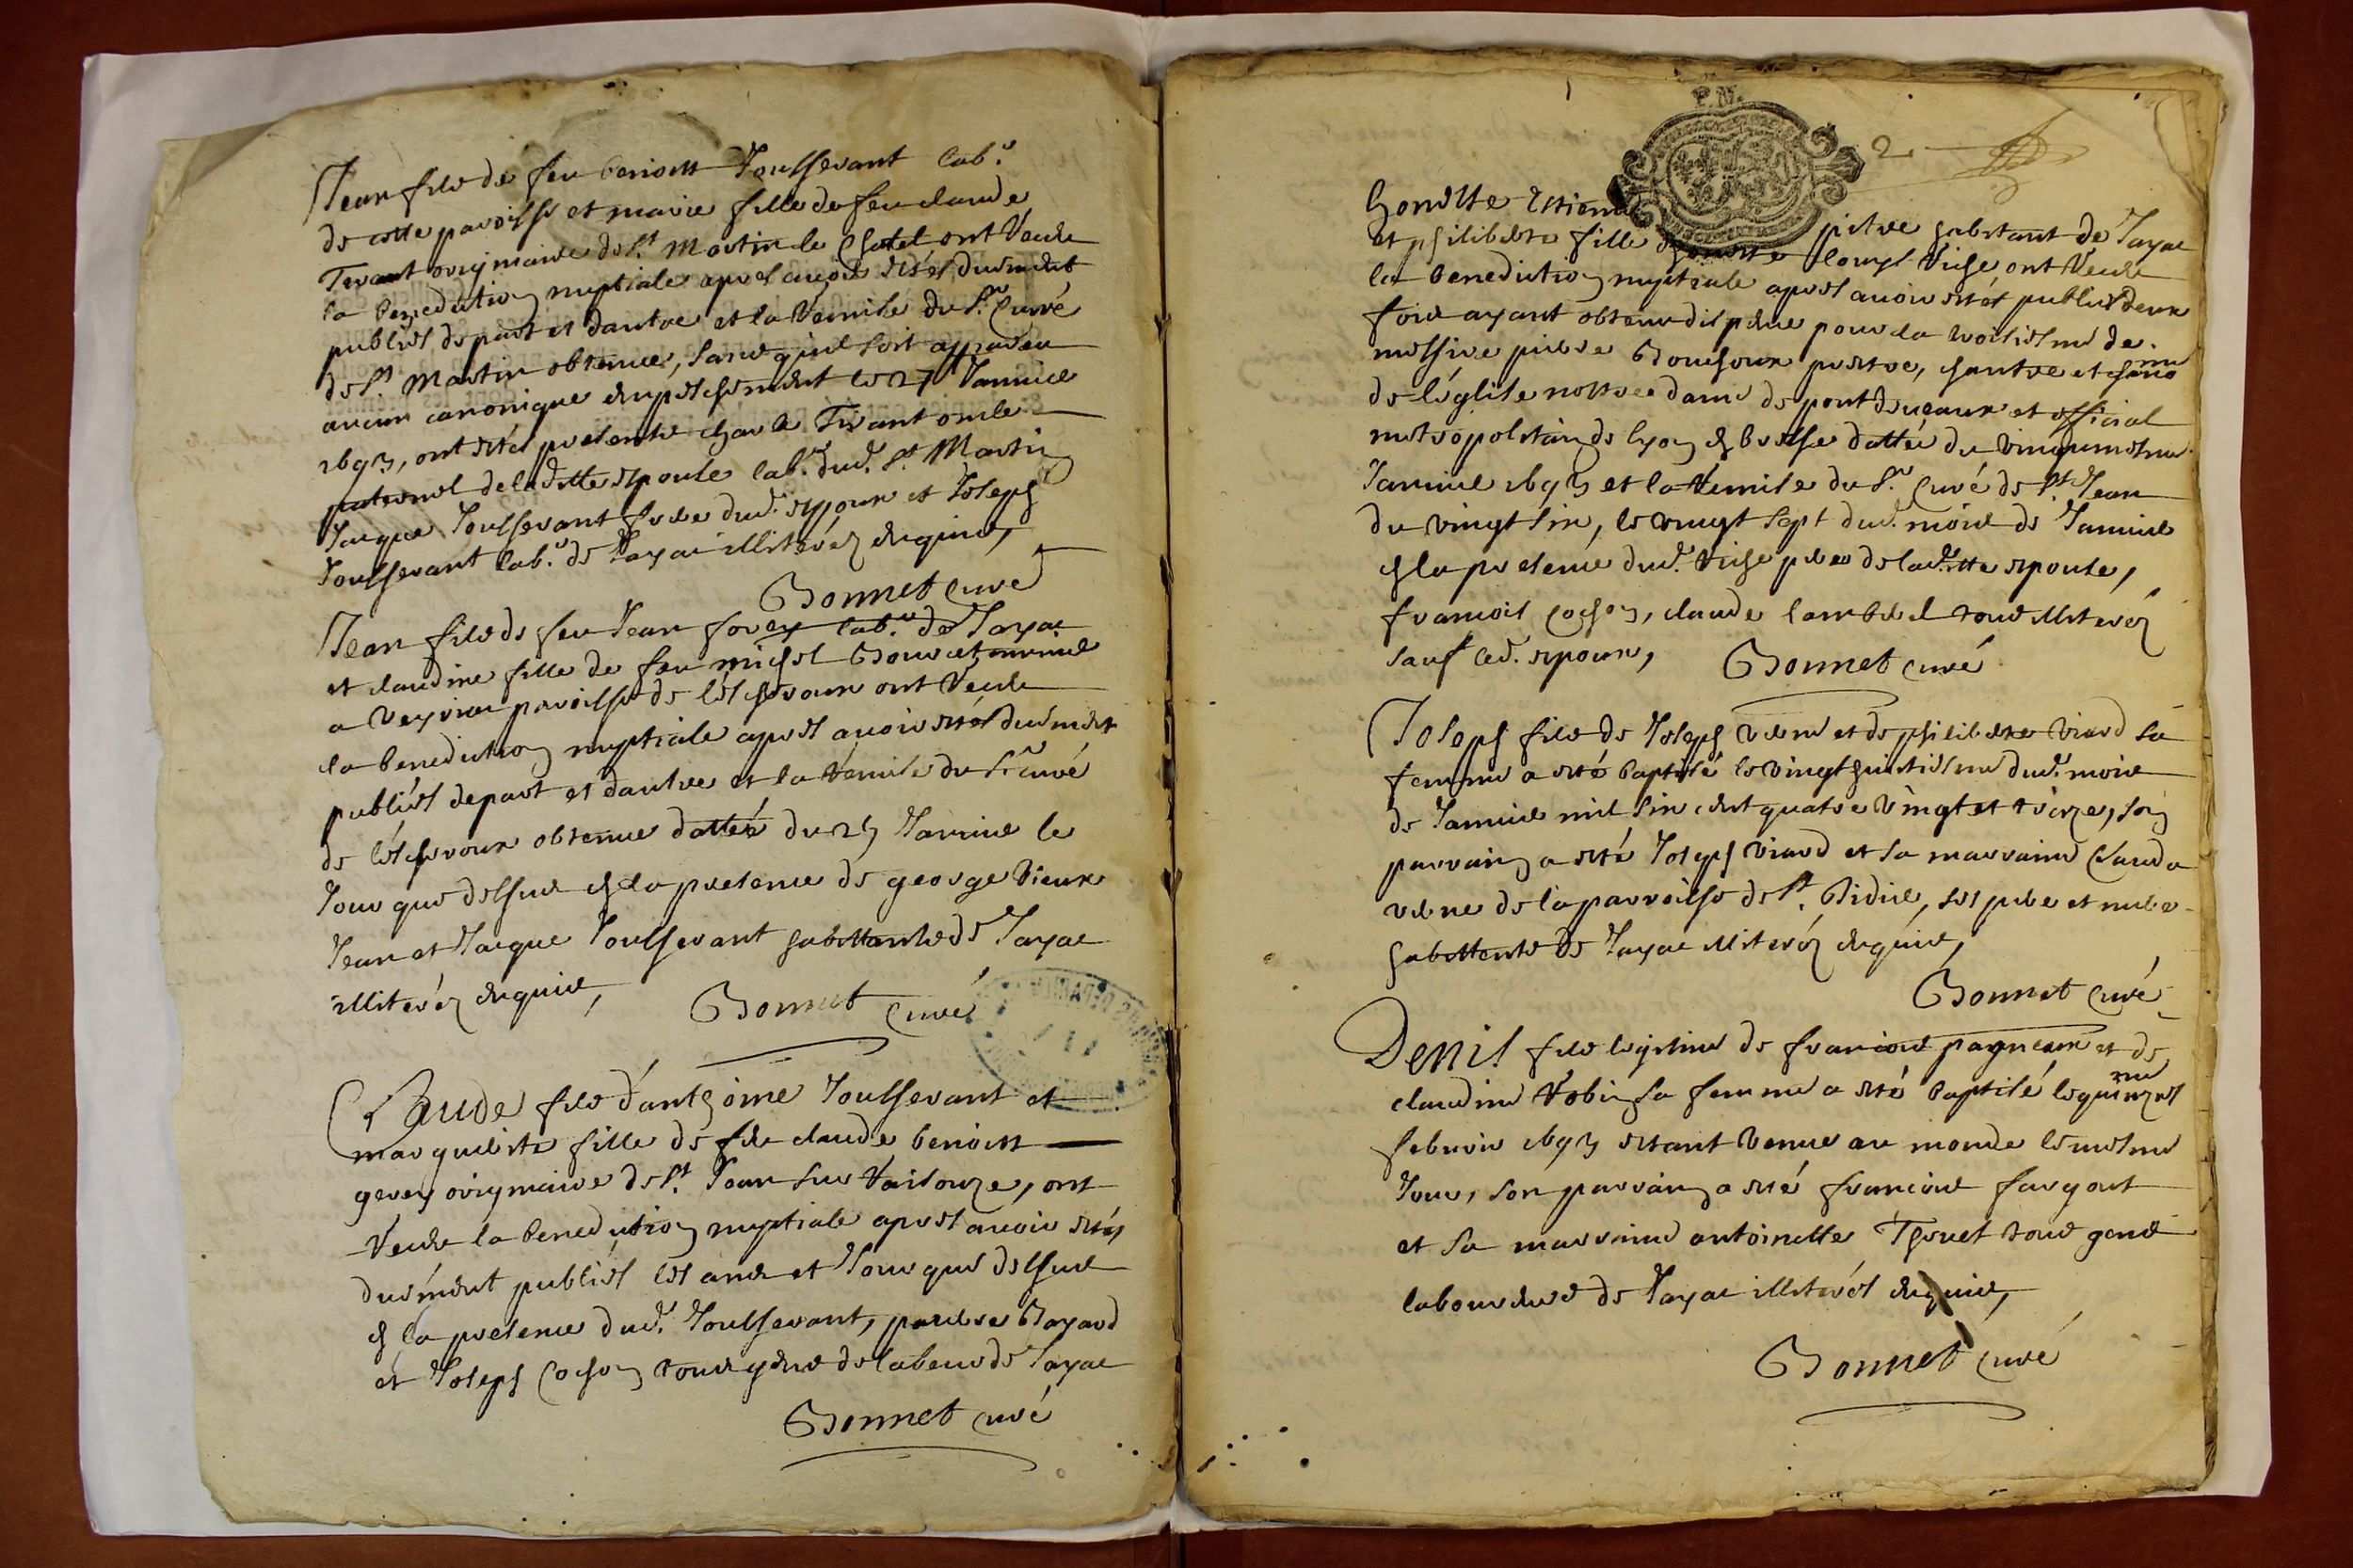 Jean fils de feu benoitt Joussevant lab.r
de cette paroisse et marie fille de feu claude
Tivant originaire de St. Martin le Chatel ont Receu
la benediction nuptiale apres avoir estés duëment
publiés de part et dautre et la Remise du Sr. Curé
de St. Martin obtenue, sans quil soit apparu
aucun canonique empeschement le 27 Janvier
1693, ont estés presents charle Tivant oncle
paternel de laditte espouse lab.r dud. St. Martin
Jacque Joussevant frere dud. espoux et Joseph
Joussevant lab.r de Jayac illiterés enquis,
Bonnet curé
Jean fils de feu Jean forey lab.r de Jayac
et claudine fille de feu michel
a paroisse de lescheroux ont Receu
la benediction nuptiale apres avoir estés duëment
publiés de part et dautre et la Remise du Sr. curé
de lescheroux obtenue dattée du 25 Janvier le
Jour que dessus en la presence de george vieux
Jean et Jacque Joussevant habittants de Jayac
illiterés enquis, Bonnet Curé
Claude fils d'anthoine Joussevant et
marguerite fille de feu claude benoitt
gerey originaire de St. Jean sur Raisouze, ont
Receu la benediction nuptiale apres avoir estés
duëment publiés les ans et Jour que dessus
en la presence dud. Joussevant, pierre Bayard
et Joseph Cochon tous gens de labeur de Jayac
Bonnet curé
P.N.
2
honette Estienne pitre habitant de Jayac
et philiberte fille honette louys Vuiche ont Receu
la benediction nuptiale apres avoir estés publiés deux
fois ayant obtenu dispense pour la troisiesme de
messire pierre Bouchoux prestre, chantre et chano
ine
de léglise nottre dame de pont de vaux et official
metropolitain de lyon en bresse dattée du vingt uniesme
Janvier 1693 et la Remise du Sr. Curé de St. Jean
du vingt six, le vingt sept dud. mois de Janvier
en la presence dud. Vuiche pere de laditte espouse,
francois Cochon, claude lambert tous illiterés
sauf led. espoux, Bonnet curé
Joseph fils de Joseph verne et de philiberte viard sa
femme a esté baptisé le vingt huictiesme dud. mois
de Janvier mil six cent quatre vingt et treize, son
parrain a esté Joseph viard et sa marraine Clauda
verne de la parroisse de St. Didier, ses pere et mere
habittents de Jayac illiterés enquis,
Bonnet Curé
Denis fils legitime de francois pagneux et de
claudine Robin sa femme a esté baptisé le quinzies
me
febvrier 1693 estant venu au monde le mesme
Jour, son parrain a esté francois fargout
et sa marraine antoinette Thevet tous gens
laboureurs de Jayac illiterés enquis,
Bonnet curé